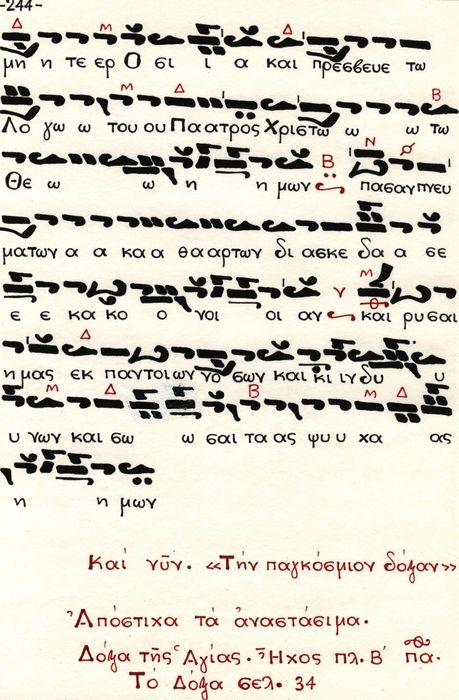 -244-
μη η τε ερ Ο σι ι α και πρεσβευε τω
Λο γω ω του ου Πα ατρος Χριστω ω ω τω
Θε ω ω η η μων πασαν πνευ
ματων α α κα α θα αρτων δι ασκε δα α σε
ε ε κα κο ο νοι οι αν και ρυσαι
ημας εκ παντοιων νο σων και κι ιν δυ υ
υ νων και σω ω σαι τα ας ψυ υ χα ας
η η μων
Καί νῦν. «Τήν παγκόσμιον δόξαν»
Ἀπόστιχα τά ἀναστάσιμα.
Δόξα τῆς Ἁγίας. Ἦχος πλ. Β΄ πα.
Τό Δόξα σελ. 34